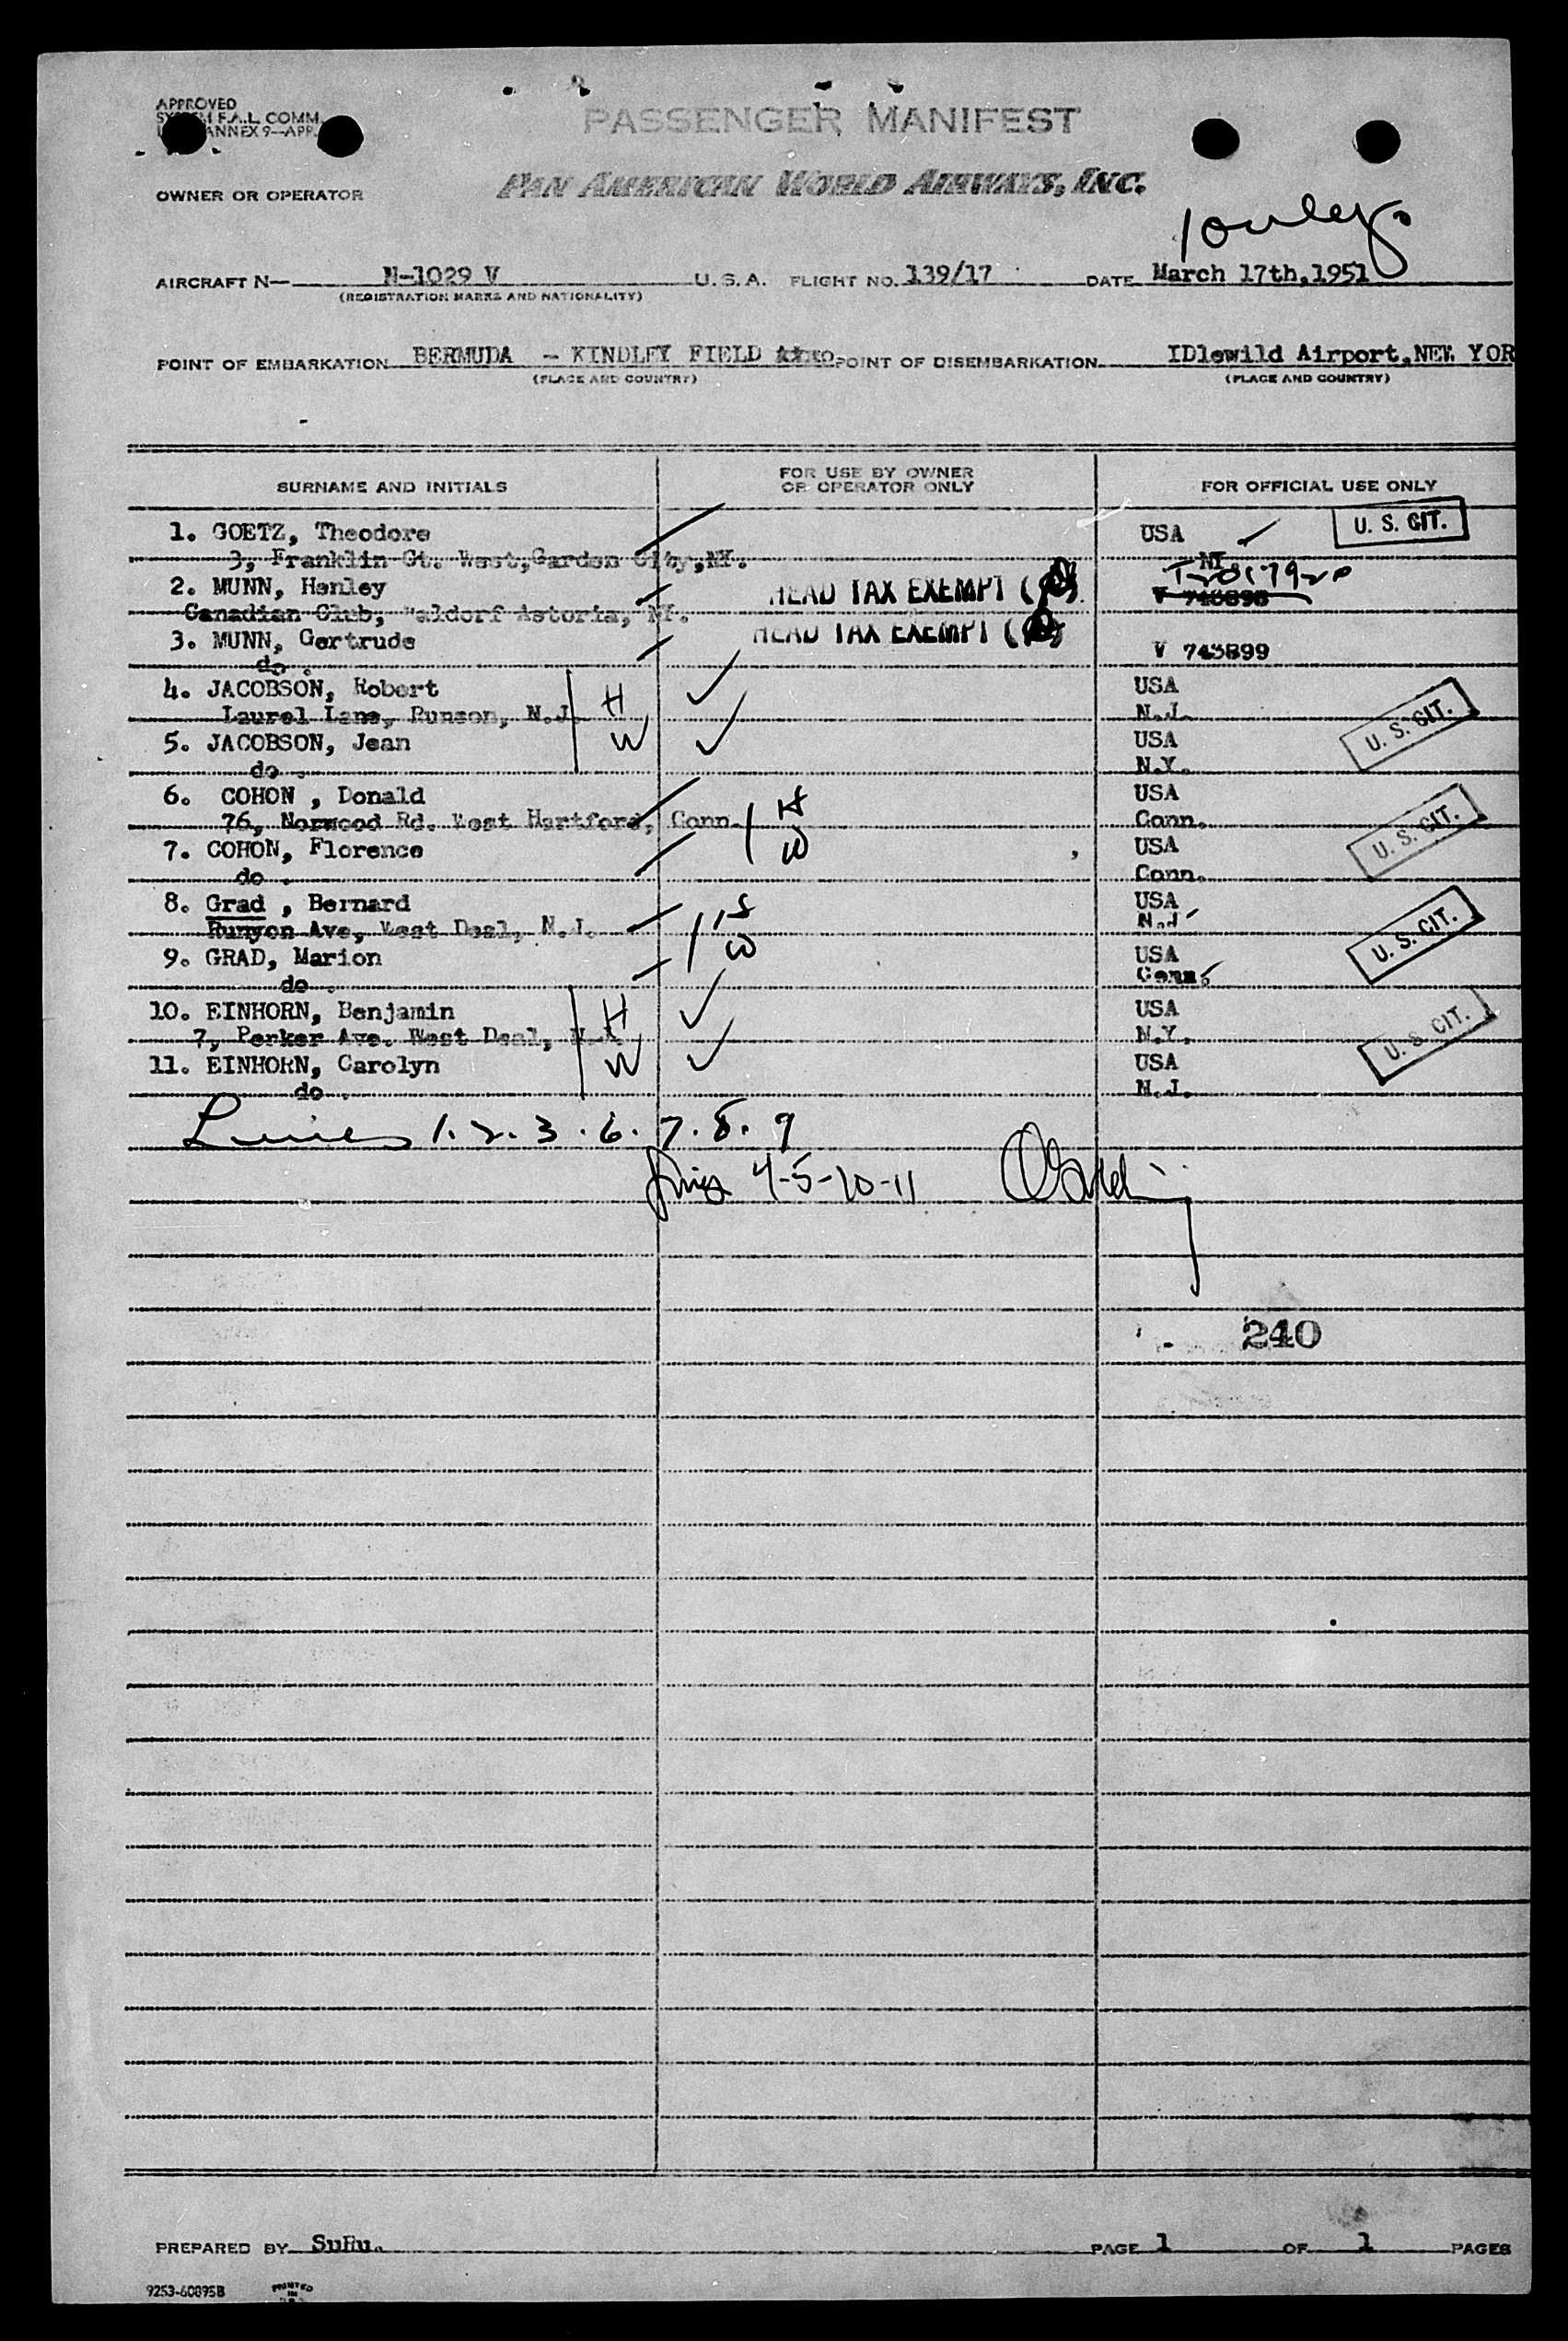 APPROVED
F.A.L. COMM.
ANNEX 9—APP.
PASSENGER MANIFEST
OWNER OR OPERATOR
PAN AMERICAN WORLD AIRWAYS, INC.
AIRCRAFT N— N-1029 V U. S. A. FLIGHT NO. 139/17 DATE March 17th,1951
(REGISTRATION MARKS AND NATIONALITY)
POINT OF EMBARKATION BERMUDA - KINDLEY FIELD POINT OF DISEMBARKATION IDlewild Airport,NEW YOR
(PLACE AND COUNTRY) (PLACE AND COUNTRY)
SURNAME AND INITIALS FOR USE BY OWNER OR OPERATOR ONLY FOR OFFICIAL USE ONLY
1. GOETZ, Theodore USA U. S. CIT.
3, Franklin Ct. West,Garden City,NY. NY.
2. MUNN, Henley HEAD TAX EXEMPT
Canadian Club, Waldorf Astoria, NY.
3. MUNN, Gertrude HEAD TAX EXEMPT V 743899
do .
4. JACOBSON, Robert H USA
Laurel Lane, Rumson, N.J. N.J.
5. JACOBSON, Jean W USA U. S. CIT.
do . N.Y.
6. COHON , Donald H USA
76, Norwood Rd. West Hartford, Conn. Conn.
7. COHON, Florence W USA U. S. CIT.
do . Conn.
8. Grad , Bernard USA
Runyon Ave, West Deal, N.J. N.J
9. GRAD, Marion W USA U. S. CIT.
do . Conn.
10. EINHORN, Benjamin H USA
7, Parker Ave. West Deal, N.J. N.Y.
11. EINHORN, Carolyn W USA U. S. CIT.
do . N.J.
Lines 1. 2. 3. 6. 7. 8. 9
Lines 4-5-10-11
240
PREPARED BY SuHu. PAGE 1 OF 1 PAGES
9253-60895B PRINTED IN